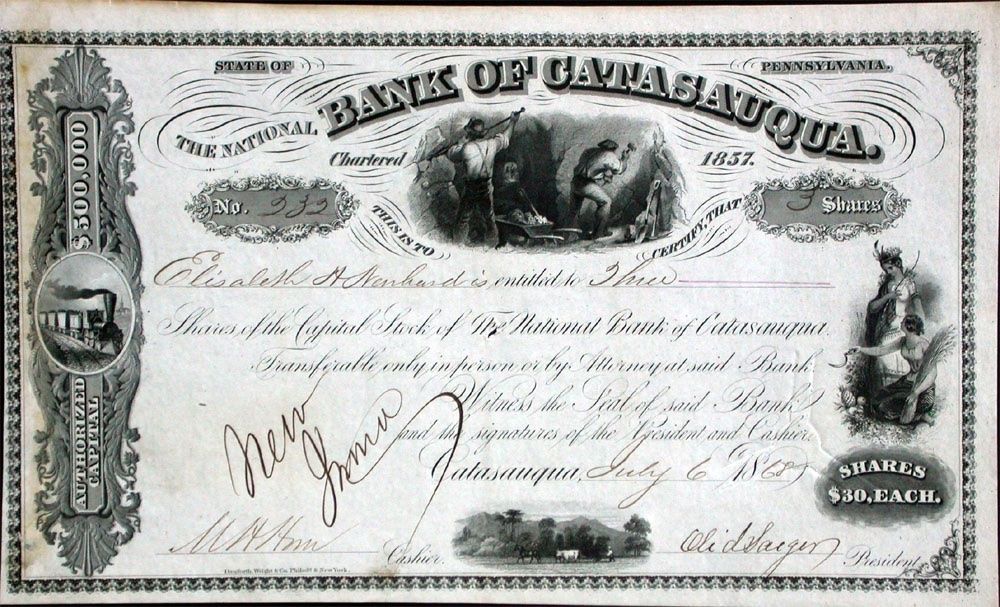 STATE OF PENNSYLVANIA.
THE NATIONAL BANK OF CATASAUQUA.
Chartered 1857.
No. 232
3 Shares
THIS IS TO CERTIFY, THAT
Elisabeth H is entitled to Three
Shares of the Capital Stock of The National Bank of Catasauqua.
Transferable only in person or by Attorney at said Bank.
Witness the Seal of said Bank
and the signatures of the President and Cashier.
Catasauqua, July 6 1868
New
Cashier.
President.
SHARES
$30, EACH.
$500,000
AUTHORIZED
CAPITAL
Danforth, Wright & Co. Philada & New York.